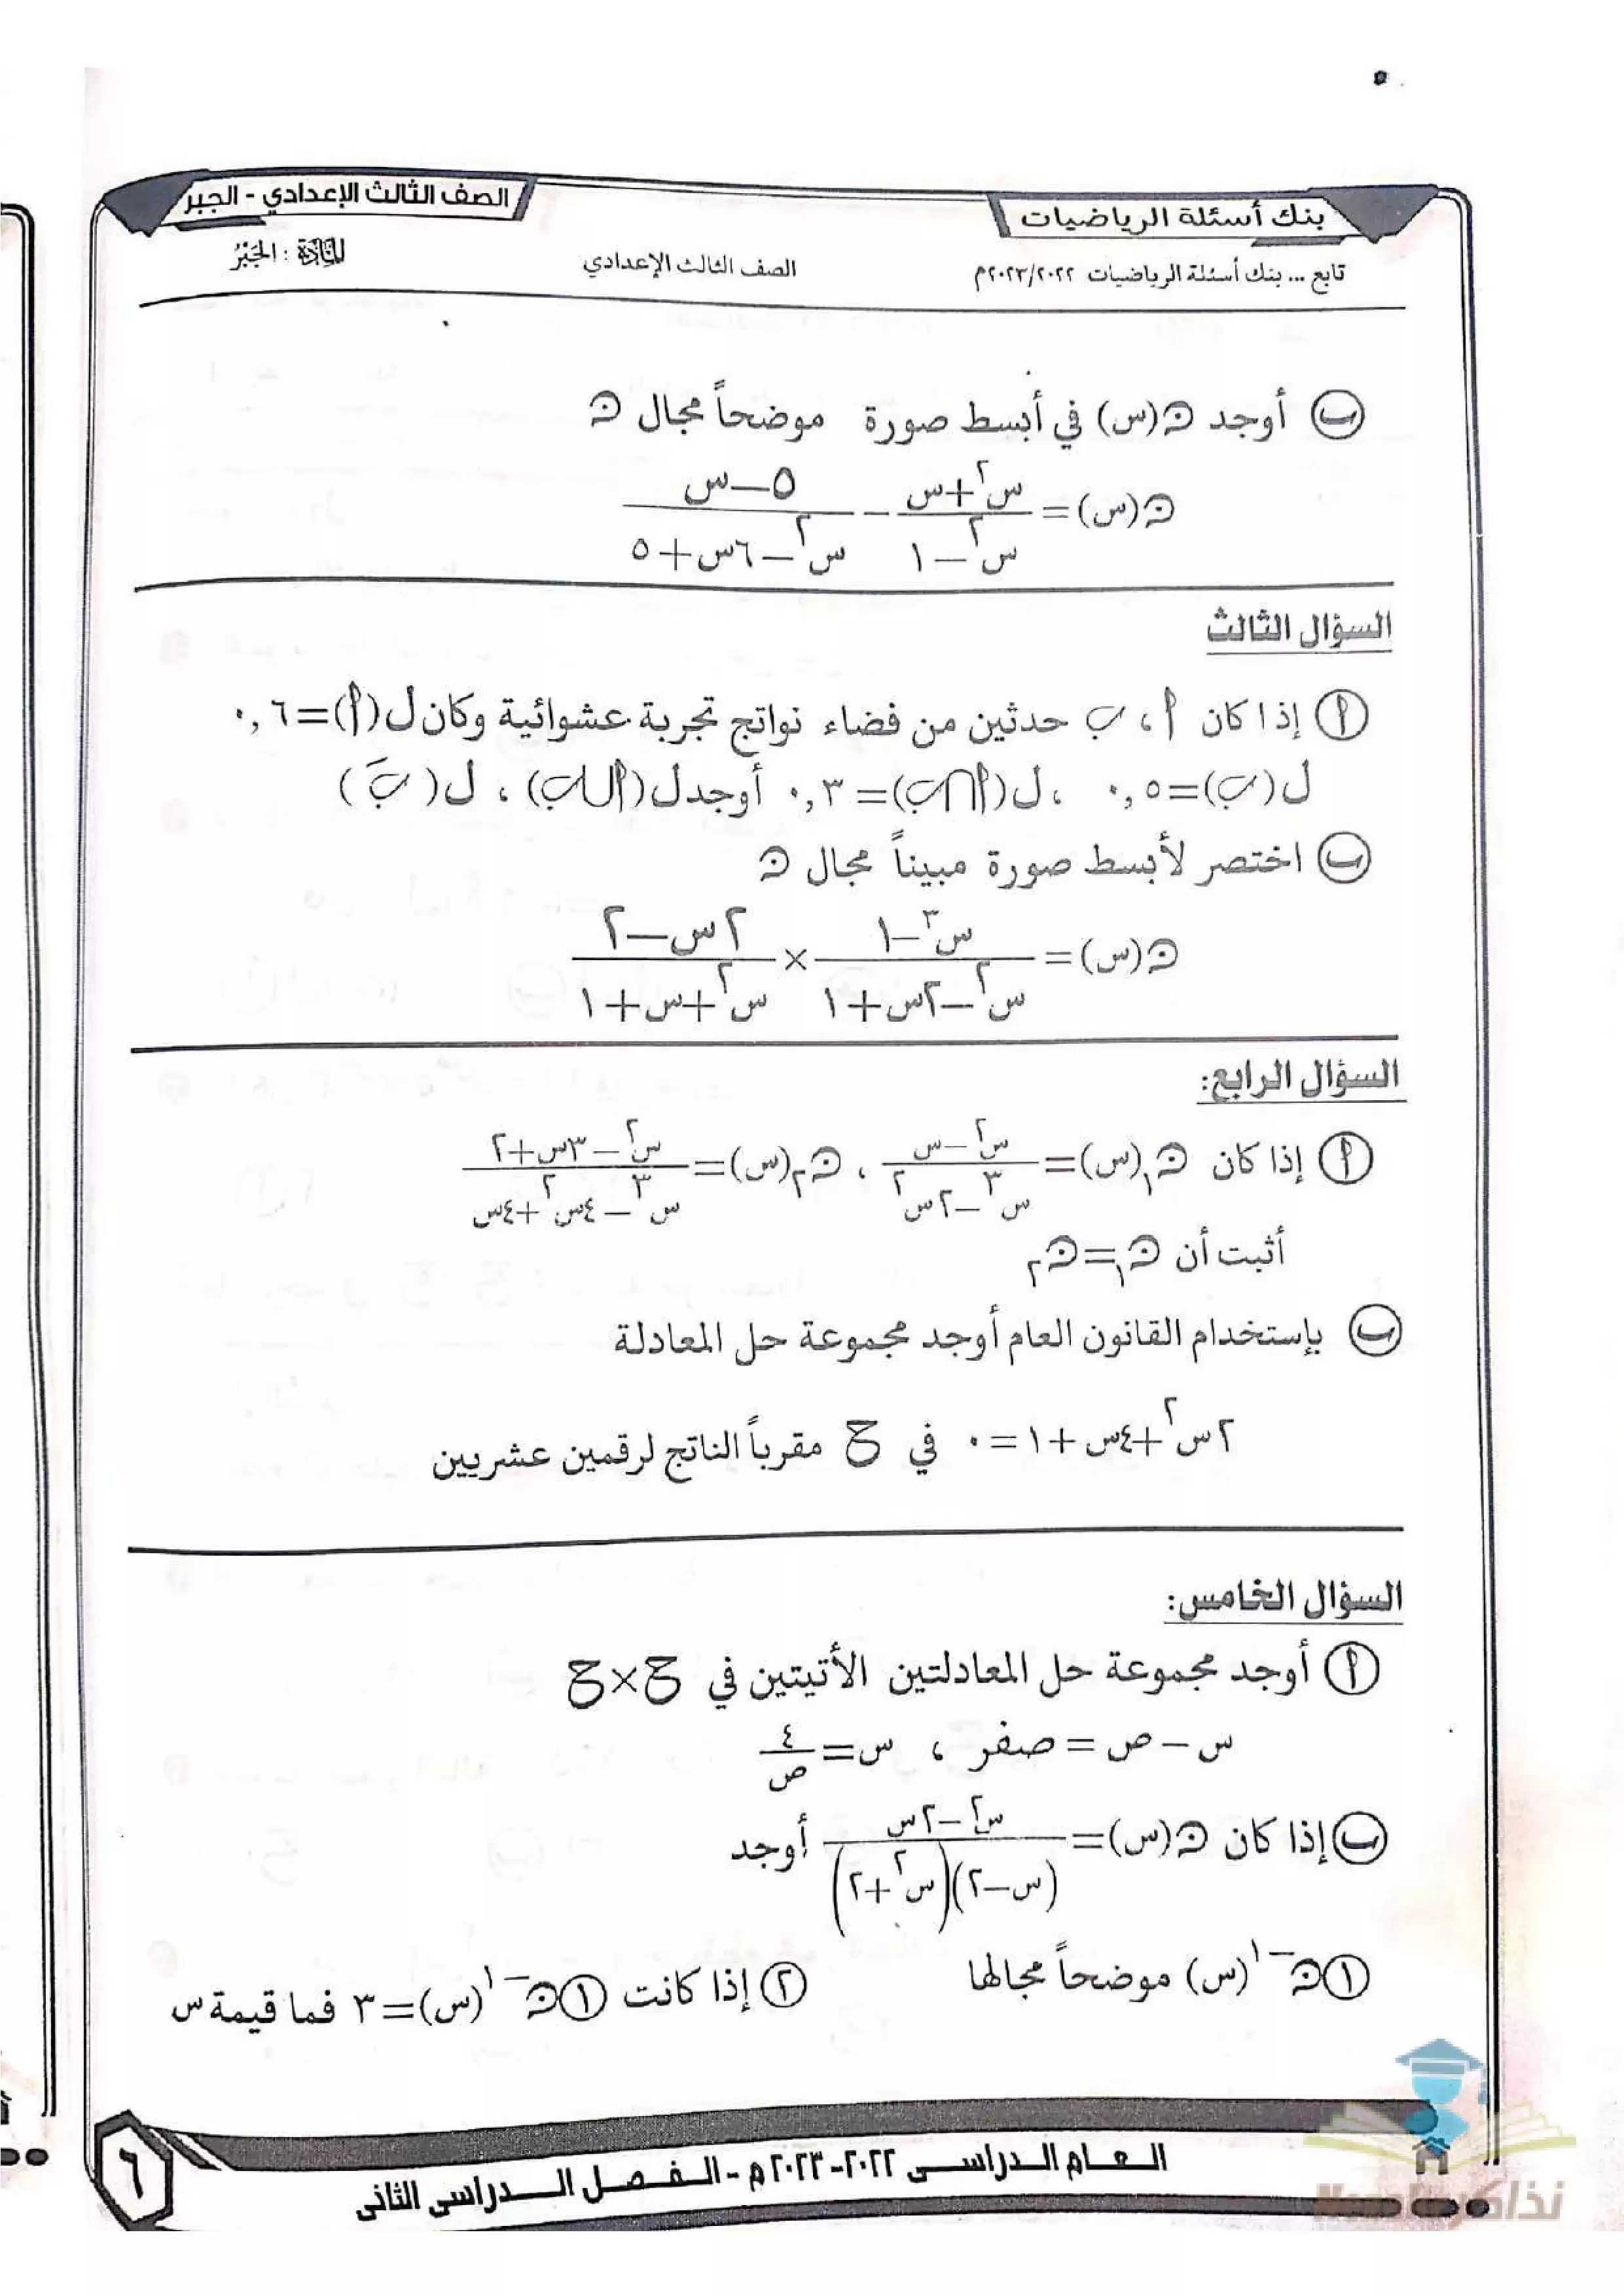 بنك أسئلة الرياضيات
الصف الثالث الإعدادي - الجبر
تابع ... بنك أسئلة الرياضيات ٢٠٢٣/٢٠٢٢م الصف الثالث الإعدادي المَادَة : الجَبْر
(ب) أوجد ن(س) في أبسط صورة موضحاً مجال ن
ن(س) = (س² + س)/(س² − ١) − (٥ − س)/(س² − ٦س + ٥)
السؤال الثالث
(أ) إذا كان أ ، ب حدثين من فضاء نواتج تجربة عشوائية وكان ل(أ) = ٠,٦
ل(ب) = ٠,٥ ، ل(أ∩ب) = ٠,٣ أوجد ل(أ∪ب) ، ل(بَ)
(ب) اختصر لأبسط صورة مبيناً مجال ن
ن(س) = (س³ − ١)/(س² − ٢س + ١) × (٢س − ٢)/(س² + س + ١)
السؤال الرابع:
(أ) إذا كان ن₁(س) = (س² − س)/(س³ − ٢س²) ، ن₂(س) = (س² − ٣س + ٢)/(س³ − ٤س² + ٤س)
أثبت أن ن₁ = ن₂
(ب) بإستخدام القانون العام أوجد مجموعة حل المعادلة
٢س² + ٤س + ١ = ٠ في ح مقرباً الناتج لرقمين عشريين
السؤال الخامس:
(أ) أوجد مجموعة حل المعادلتين الأتيتين في ح×ح
س − ص = صفر ، س = ٤/ص
(ب) إذا كان ن(س) = (س² − ٢س)/((س − ٢)(س² + ٢)) أوجد
(١) ن⁻¹(س) موضحاً مجالها (٢) إذا كانت (١) ن⁻¹(س) = ٣ فما قيمة س
العام الدراسى ٢٠٢٢-٢٠٢٣م - الفصل الدراسى الثانى
٦
نذاكر